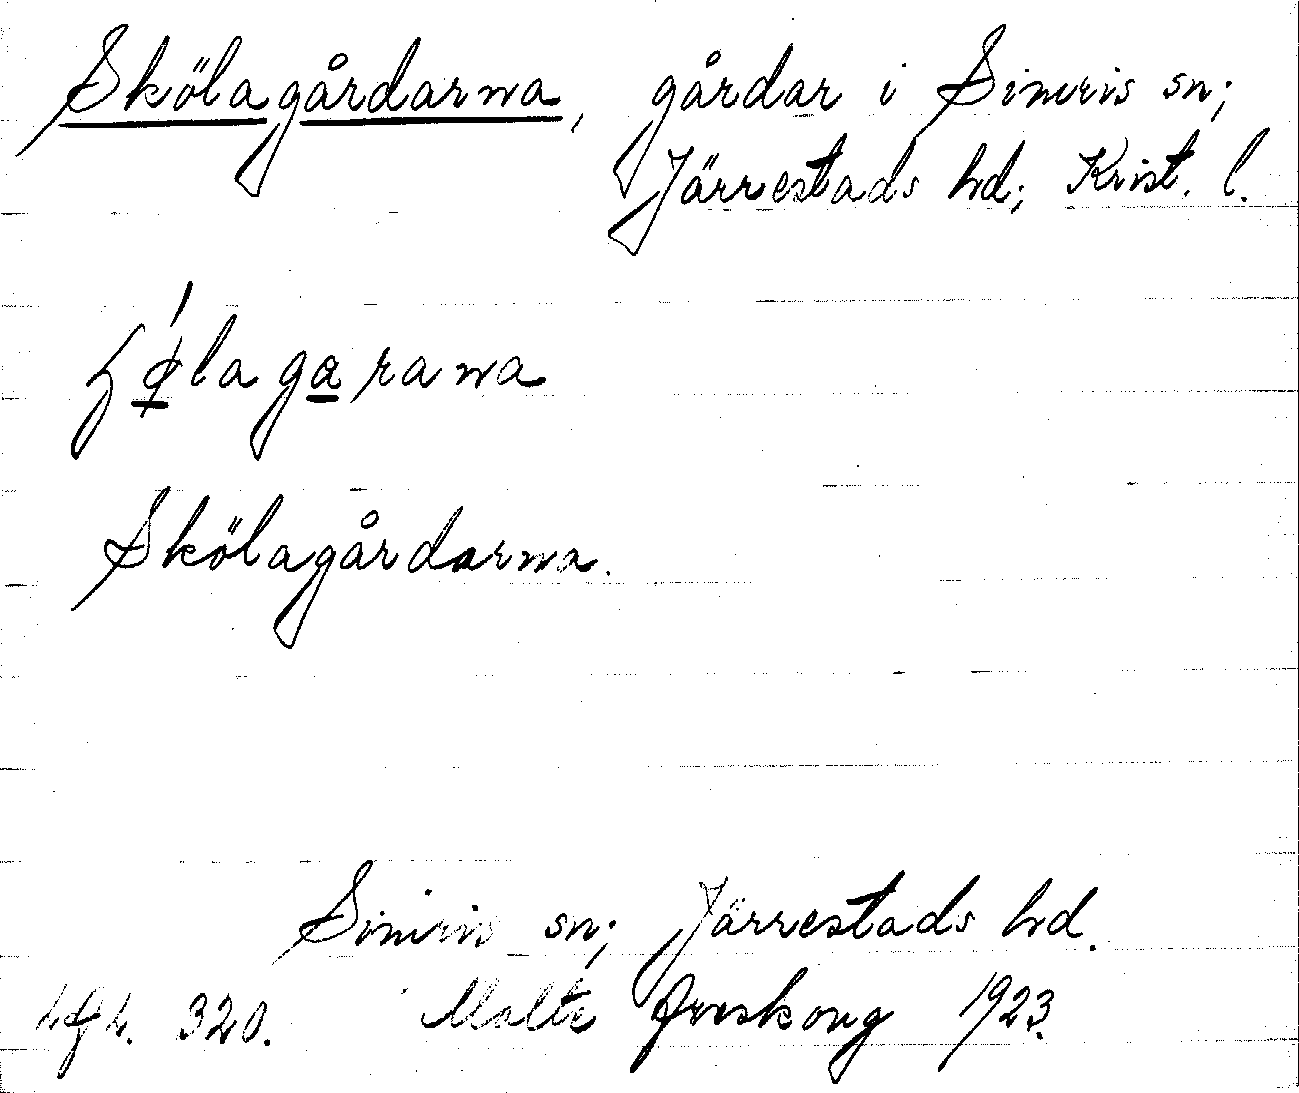 Skölagårdarna, gårdar i Simris sn;
Järrestads hd; Krist. l.
Skölagårdarna.
Simris sn; Järrestads hd.
320. Malte 1923.